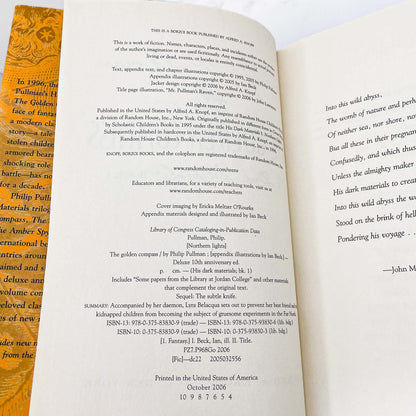 THIS IS A BORZOI BOOK PUBLISHED BY ALFRED A. KNOPF
This is a work of fiction. Names, characters, places, and incidents either are the product
of the author's imagination or are used fictitiously. Any resemblance to actual persons,
living or dead, events, or locales is entirely coincidental.
Text, appendix text, and chapter illustrations copyright © 1995, 2005 by Philip Pullman
Appendix illustrations copyright © 2005 by Ian Beck
Jacket design copyright © 2006 by Alfred A. Knopf
Title page illustration, "Mr. Pullman's Raven," copyright © 2006 by John Lawrence
All rights reserved.
Published in the United States by Alfred A. Knopf, an imprint of Random House Children's Books,
a division of Random House, Inc., New York. Originally published in different form in Great Britain
by Scholastic Children's Books in 1995 under the title His Dark Materials 1: Northern Lights.
Subsequently published in hardcover in the United States by Alfred A. Knopf, an imprint of Random House
Children's Books, a division of Random House, Inc., in 1996.
KNOPF, BORZOI BOOKS, and the colophon are registered trademarks of Random House, Inc.
www.randomhouse.com/teens
Educators and librarians, for a variety of teaching tools, visit us at
www.randomhouse.com/teachers
Cover imaging by Ericka Meltzer O'Rourke
Appendix materials designed and illustrated by Ian Beck
Library of Congress Cataloging-in-Publication Data
Pullman, Philip.
[Northern lights]
The golden compass / by Philip Pullman ; [appendix illustrations by Ian Beck].—
Deluxe 10th anniversary ed.
p. cm. — (His dark materials; bk. 1)
Includes "Some papers from the Library at Jordan College" and other materials
that complement the original text.
Sequel: The subtle knife.
SUMMARY: Accompanied by her daemon, Lyra Belacqua sets out to prevent her best friend and other
kidnapped children from becoming the subject of gruesome experiments in the Far North.
ISBN-13: 978-0-375-83830-9 (trade) — ISBN-13: 978-0-375-93830-6 (lib. bdg.)
ISBN-10: 0-375-83830-9 (trade) — ISBN-10: 0-375-93830-3 (lib. bdg.)
[1. Fantasy.] I. Beck, Ian, ill. II. Title.
PZ7.P968Go 2006
[Fic]—dc22 2005032556
Printed in the United States of America
October 2006
10 9 8 7 6 5 4
In 1996,
Pullman's H
The Golden
face of fantas
a modern
story—a tale
other world
armored bears
shocking role
battle—has no
for a decade.
Philip Pullman
Materials trilogy
Compass, The
the Amber Spy
international be
countries around
claimed and s
deluxe ann
beloved class
of new a
includes new m
from the
Into this wild abyss,
The womb of nature and perh
Of neither sea, nor shore, no
But all these in their pregnant
Confusedly, and which thus
Unless the almighty maker
His dark materials to create
Into this wild abyss the w
Stood on the brink of hell
Pondering his voyage . .
—John M